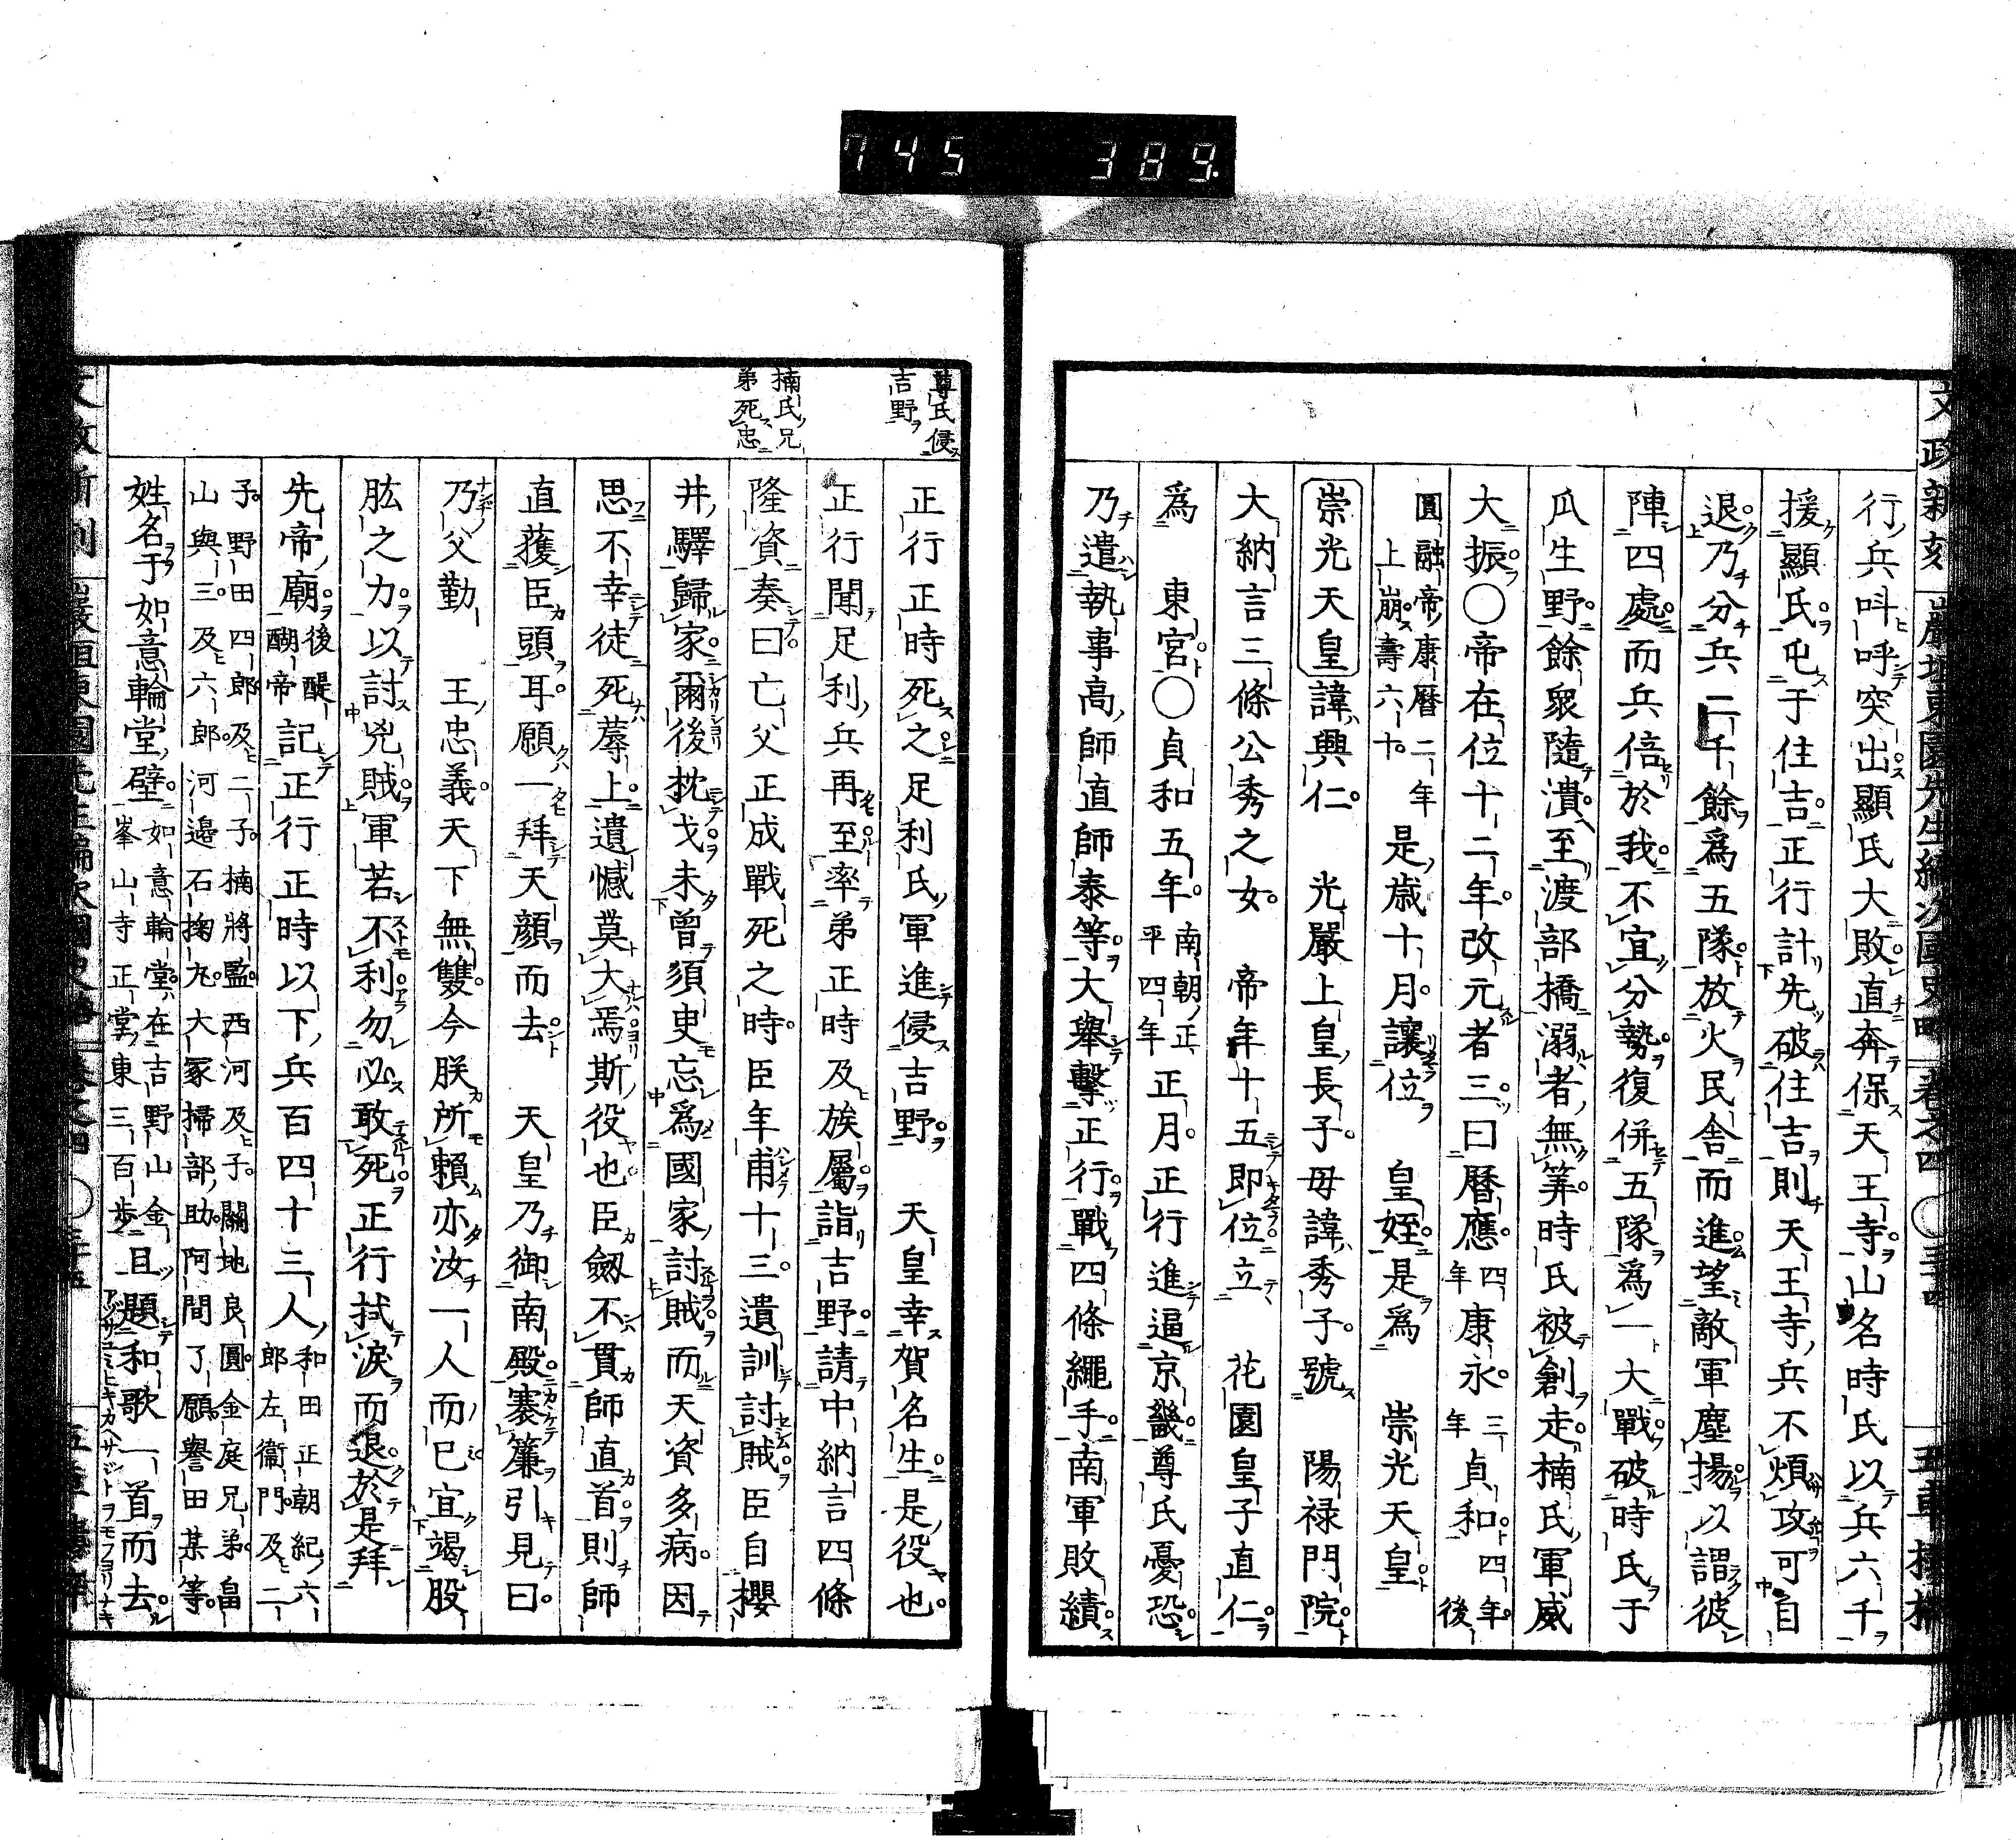 745 389.
行兵呌呼突出顯氏大敗直奔保天王寺山名時氏以兵六千
援顯氏屯于住吉正行計先破住吉則天王寺兵不煩攻可自
退乃分兵二千餘爲五隊放火民舎而進望敵軍塵揚以謂彼
陣四處而兵倍於我不宜分勢復併五隊爲一大戰破時氏于
瓜生野餘衆隨潰至渡部橋溺者無筭時氏被創走楠氏軍威
大振〇帝在位十二年改元者三曰曆應四年康永三年貞和四年後
圓融帝康曆二年上崩壽六十是歳十月讓位 皇姪是爲 崇光天皇
崇光天皇諱興仁 光嚴上皇長子母諱秀子號 陽禄門院
大納言三條公秀之女 帝年十五即位立 花園皇子直仁
爲 東宮〇貞和五年南朝正平四年正月正行進逼京畿尊氏憂恐
乃遣執事高師直師泰等大舉擊正行戰四條繩手南軍敗績
尊氏侵吉野
楠氏兄弟死忠
正行正時死之足利氏軍進侵吉野 天皇幸賀名生是役也
正行聞足利兵再至率弟正時及族屬詣吉野請中納言四條
隆資奏曰亡父正成戰死之時臣年甫十三遺訓討賊臣自櫻
井驛歸家爾後枕戈未曾須臾忘爲國家討賊而天資多病因
思不幸徒死蓐上遺憾莫大焉斯役也臣劔不貫師直首則師
直獲臣頭耳願一拜天顔而去 天皇乃御南殿褰簾引見曰
乃父勤 王忠義天下無雙今朕所賴亦汝一人而已宜竭股
肱之力以討兇賊軍若不利勿必敢死正行拭涙而退於是拜
先帝廟後醍醐帝記正行正時以下兵百四十三人和田正朝紀六郎左衞門及二
子野田四郎及二子楠將監西河及子關地良圓金庭兄弟畠
山與三及六郎河邉石掬丸大冢掃部助阿間了願譽田某等
姓名于如意輪堂壁如意輪堂在吉野山金峯山寺正堂東三百歩且題和歌一首而去